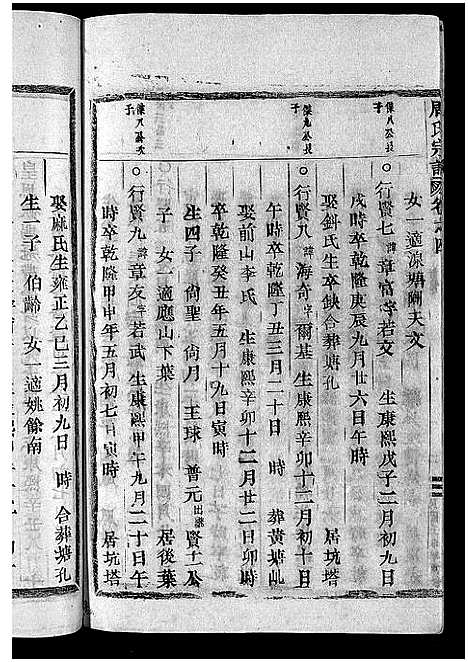 周氏宗譜卷之四
女一適源塘關天文
傑八公長子
○行賢七諱章富字若文 生康熙戊子二月初九日
戌時卒乾隆庚辰九月廿六日午時 居坑塔
娶鈄氏生卒缺合葬塘孔
傑九公長子
○行賢八諱海奇字爾基生康熙辛卯十二月初十日
午時卒乾隆丁丑三月二十日 時 葬黃塘乢
娶前山李氏 生康熙辛卯十二月廿二日卯時
卒乾隆癸丑年五月十九日寅時
生四子 尚聖 尚月 王球 普元出繼賢十一公
子 女一適應山下葉 居後葉
傑八公次子
○行賢九諱章友字若武 生康熙甲午九月二十日午
時卒乾隆甲申年五月初七日寅時 居坑塔
娶麻氏生雍正乙巳三月初九日 時 合葬塘孔
生一子 伯齡 女一適姚餘南